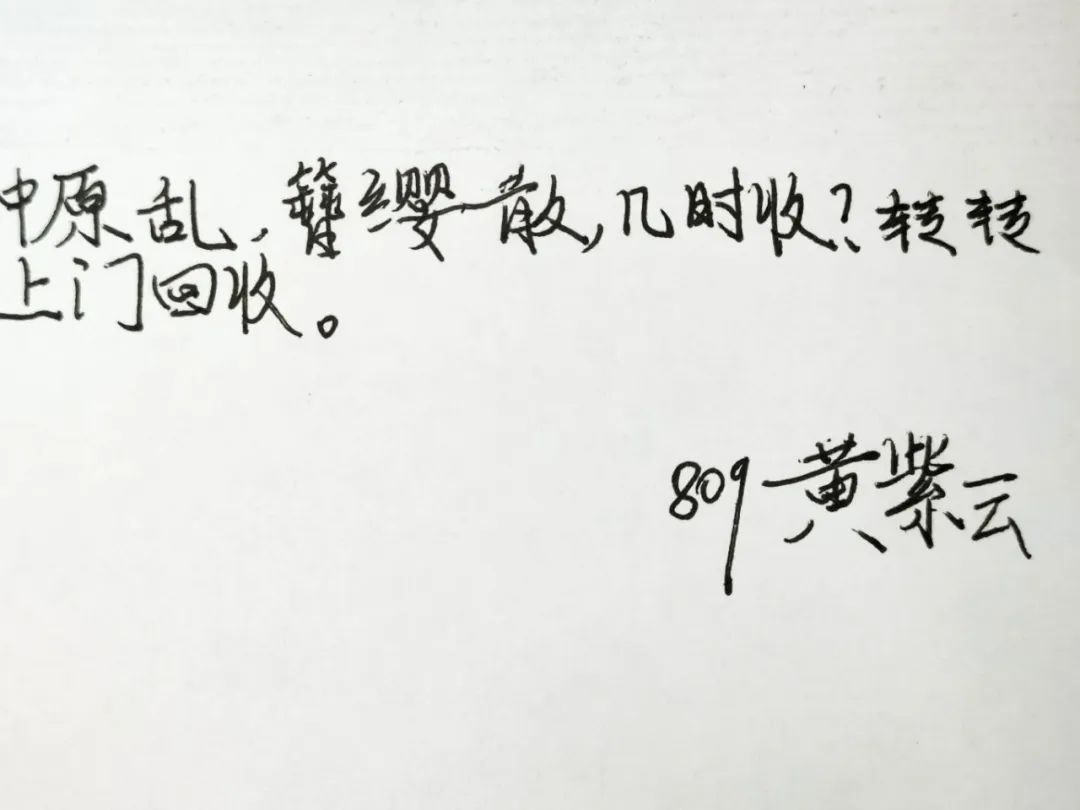 中原乱,簪缨散,几时收?转转
上门回收。
809黄紫云